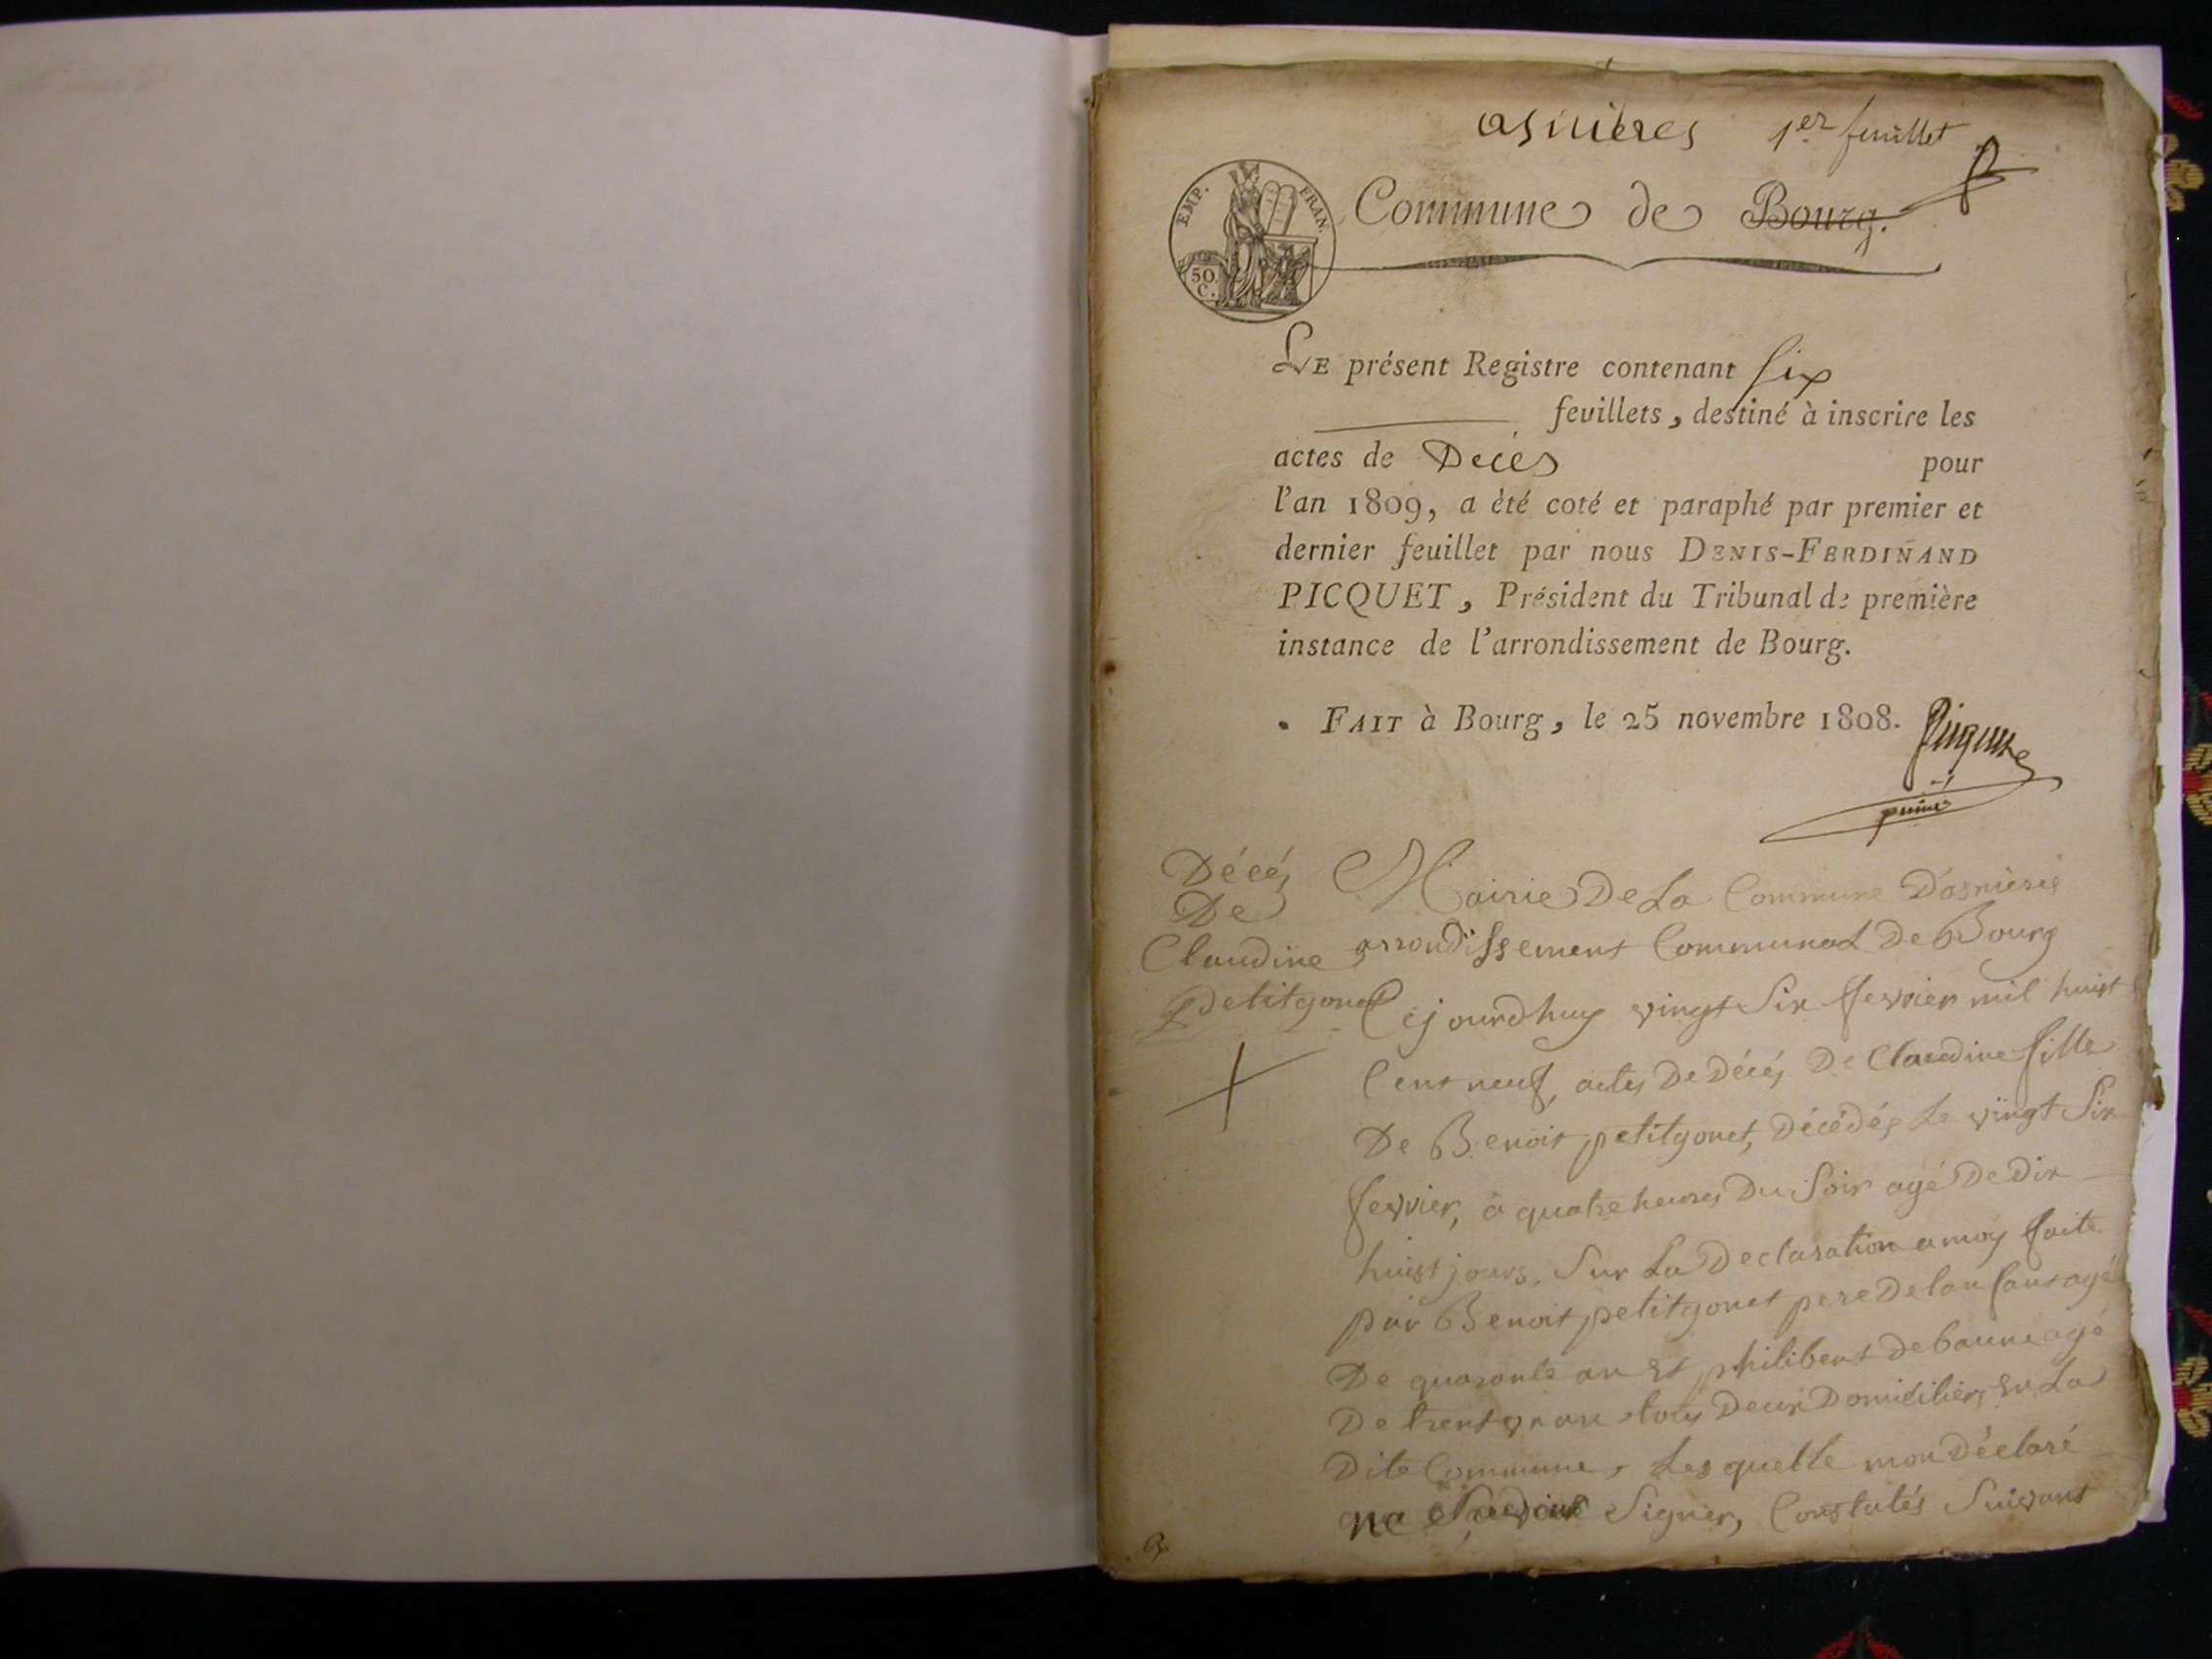 asnieres 1er feuillet
EMP. FRAN.
50.
C.
Commune de Bourg.
LE présent Registre contenant six
feuillets, destiné à inscrire les
actes de Décès pour
l'an 1809, a èté coté et paraphé par premier et
dernier feuillet par nous DENIS-FERDINAND
PICQUET, Président du Tribunal de première
instance de l'arrondissement de Bourg.
FAIT à Bourg, le 25 novembre 1808.
Picquet
Décés
De
Claudine
petitgonet
Mairie De La Commune D'asnieres
arrondissement Communal De Bourg
Cejourdhuy vingt Six fevrier mil huit
Cent neuf, actes De Décés De Claudine fille
De Benoit petitgonet, Décédés Le vingt Six
fevrier, à quatre heures Du Soir agé De Dix
huist jours, Sur La Declaration a moy faite
par Benoit petitgonet pere De lanfant agé
De quarante an Et philibert Debaune agé
De trent un an tous Deux Domiciliés En La
Dite Commune, Les quelle mon Déclaré
ne Signer, Constatés Suivant